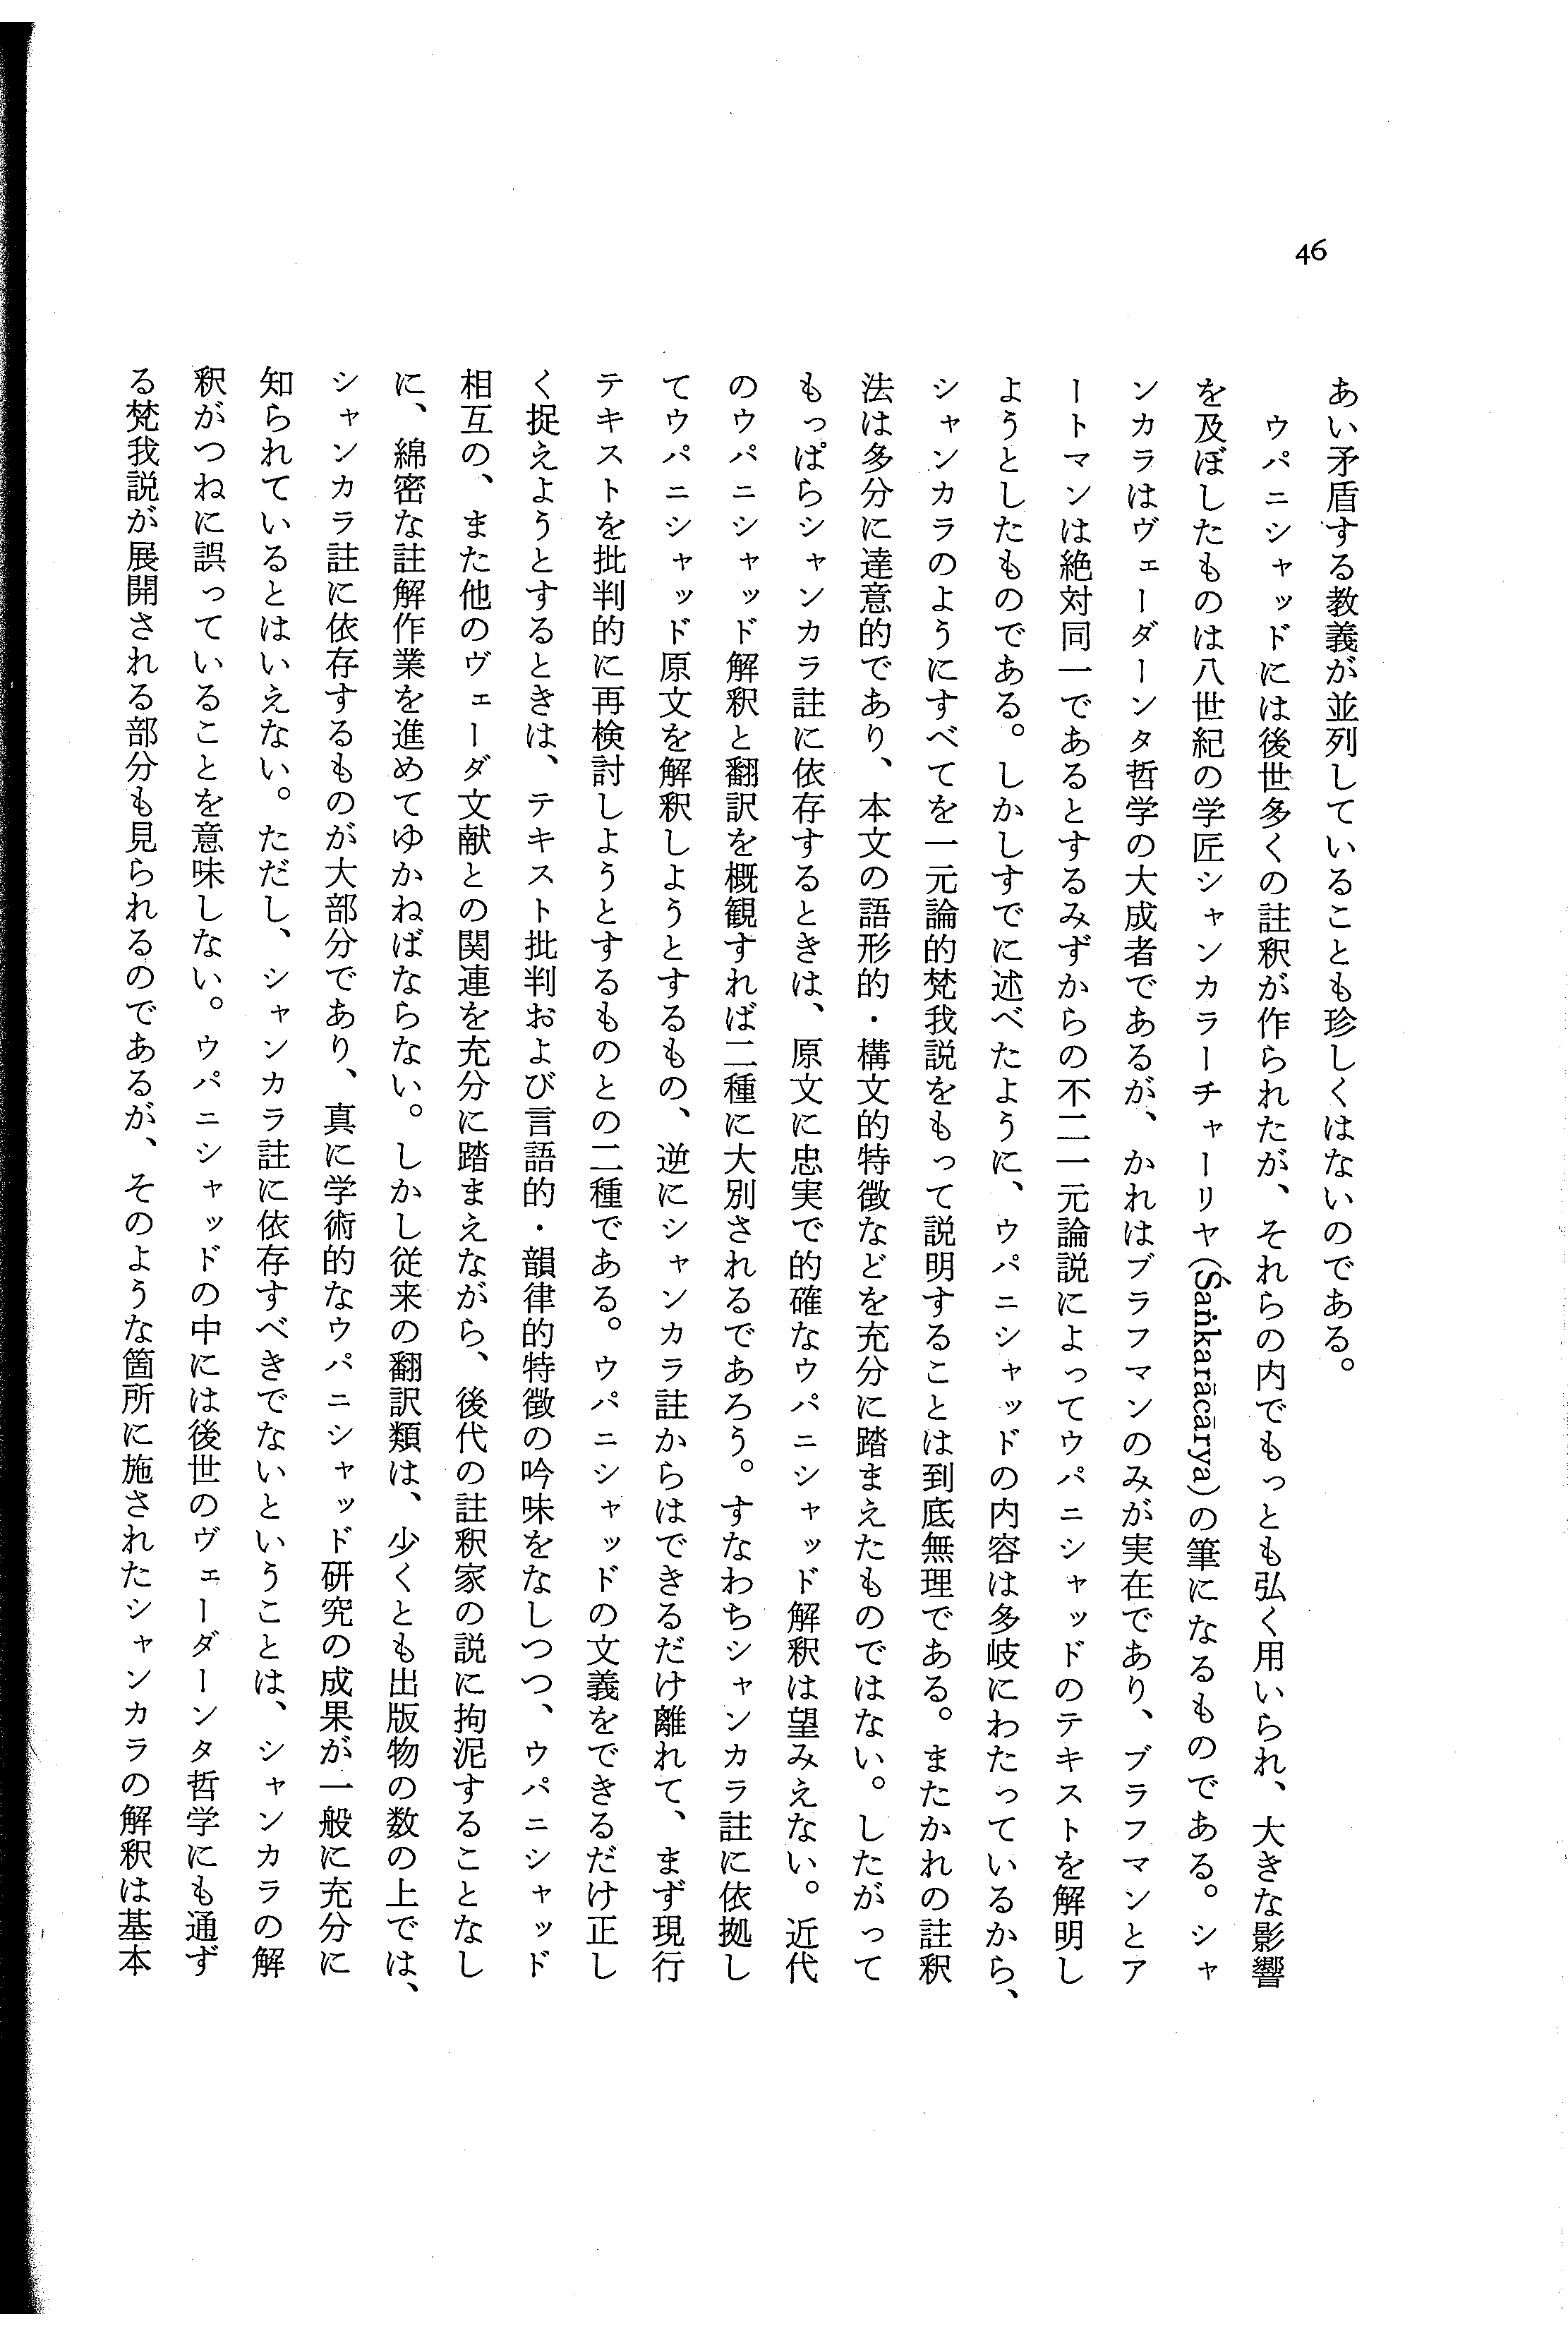 46
あい矛盾する教義が並列していることも珍しくはないのである。
ウパニシャッドには後世多くの註釈が作られたが、それらの内でもっとも弘く用いられ、大きな影響
を及ぼしたものは八世紀の学匠シャンカラーチャーリヤ(Śaṅkarācārya)の筆になるものである。シャ
ンカラはヴェーダーンタ哲学の大成者であるが、かれはブラフマンのみが実在であり、ブラフマンとア
ートマンは絶対同一であるとするみずからの不二一元論説によってウパニシャッドのテキストを解明し
ようとしたものである。しかしすでに述べたように、ウパニシャッドの内容は多岐にわたっているから、
シャンカラのようにすべてを一元論的梵我説をもって説明することは到底無理である。またかれの註釈
法は多分に達意的であり、本文の語形的・構文的特徴などを充分に踏まえたものではない。したがって
もっぱらシャンカラ註に依存するときは、原文に忠実で的確なウパニシャッド解釈は望みえない。近代
のウパニシャッド解釈と翻訳を概観すれば二種に大別されるであろう。すなわちシャンカラ註に依拠し
てウパニシャッド原文を解釈しようとするもの、逆にシャンカラ註からはできるだけ離れて、まず現行
テキストを批判的に再検討しようとするものとの二種である。ウパニシャッドの文義をできるだけ正し
く捉えようとするときは、テキスト批判および言語的・韻律的特徴の吟味をなしつつ、ウパニシャッド
相互の、また他のヴェーダ文献との関連を充分に踏まえながら、後代の註釈家の説に拘泥することなし
に、綿密な註解作業を進めてゆかねばならない。しかし従来の翻訳類は、少くとも出版物の数の上では、
シャンカラ註に依存するものが大部分であり、真に学術的なウパニシャッド研究の成果が一般に充分に
知られているとはいえない。ただし、シャンカラ註に依存すべきでないということは、シャンカラの解
釈がつねに誤っていることを意味しない。ウパニシャッドの中には後世のヴェーダーンタ哲学にも通ず
る梵我説が展開される部分も見られるのであるが、そのような箇所に施されたシャンカラの解釈は基本